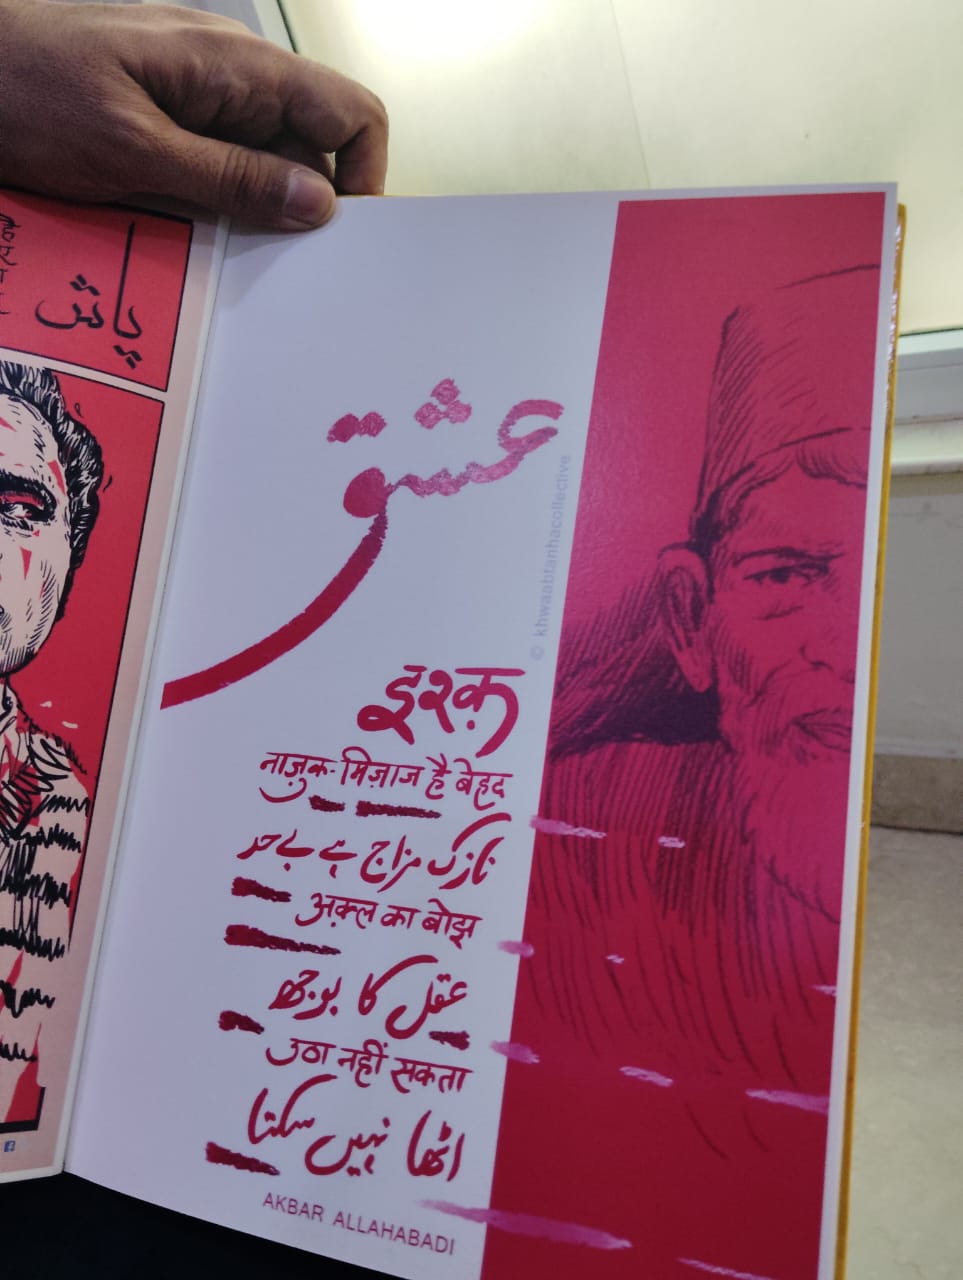 پاش
عشق
© khwaabtanhacollective
इश्क़
नाज़ुक-मिज़ाज है बेहद
نازک مزاج ہے بے حد
अक़्ल का बोझ
عقل کا بوجھ
उठा नहीं सकता
اٹھا نہیں سکتا
AKBAR ALLAHABADI